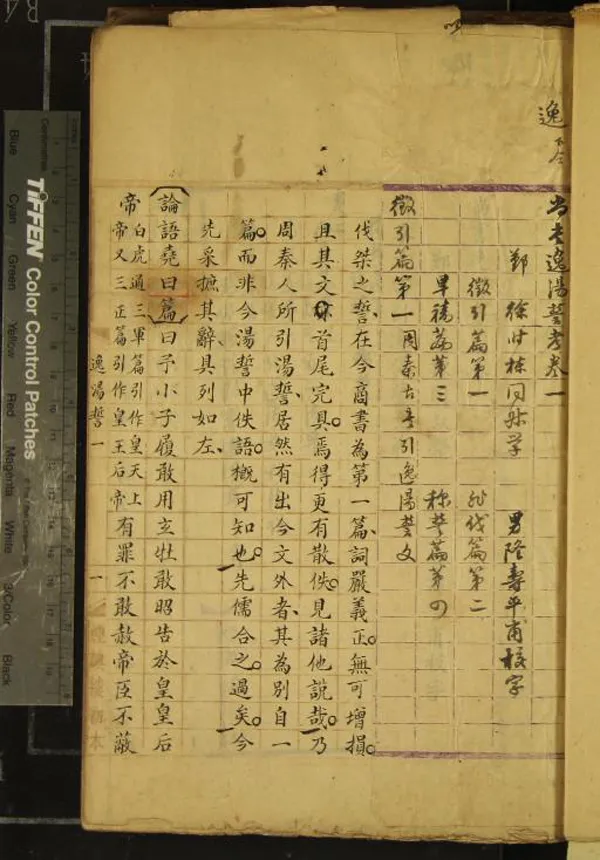 逸
尚書逸湯誓考卷一
鄞 徐時棟同叔學 男隆壽平甫校字
徵引篇第一 非伐篇第二
旱禱篇第三 稱誓篇第四
徵引篇第一 周秦古書引逸湯誓文
伐桀之誓、在今商書為第一篇、詞嚴義正。無可增損。
且其文亦首尾完具。焉得更有散佚。見諸他說哉。乃
周秦人所引湯誓、居然有出今文外者、其為別自一
篇。而非今湯誓中佚語。概可知也。先儒合之。過矣。今
先采摭其辭、具列如左、
論語堯曰篇曰予小子履敢用玄牡敢昭告於皇皇后
帝白虎通三軍篇引作皇天上帝又三正篇引作皇王后帝有罪不敢赦帝臣不蔽
逸湯誓一 一
TIFFEN Color Control Patches
Blue Cyan Green Yellow Red Magenta White 3/Color Black